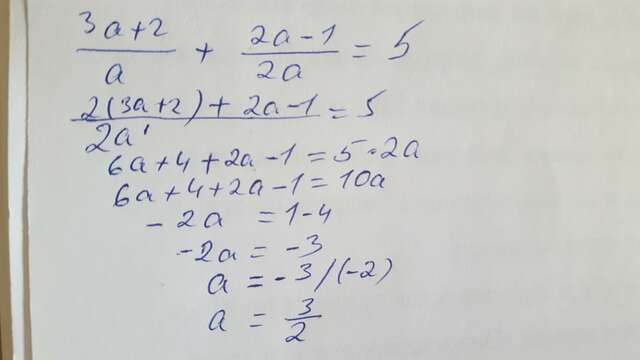 3a+2/a + 2a-1/2a = 5
2(3a+2)+2a-1/2a = 5
6a+4+2a-1=5·2a
6a+4+2a-1=10a
-2a = 1-4
-2a = -3
a = -3/(-2)
a = 3/2